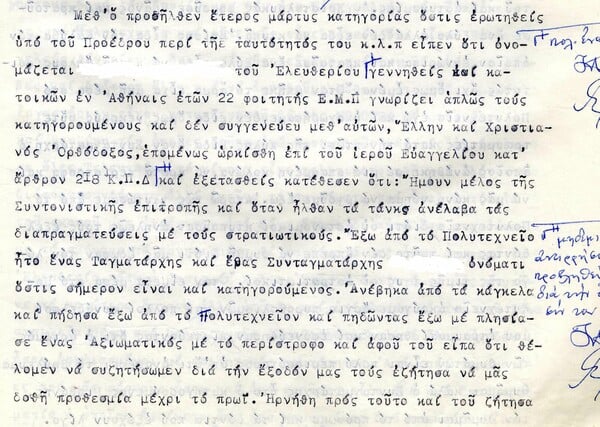 Μεθ'ὅ προῆλθεν ἕτερος μάρτυς κατηγορίας ὅστις ἐρωτηθείς
ὑπό τοῦ Προέδρου περί τῆς ταυτότητός του κ.λ.π εἶπεν ὅτι ὀνο-
μάζεται τοῦ Ἐλευθερίου γεννηθείς καί κα-
τοικῶν ἐν Ἀθήναις ἐτῶν 22 φοιτητής Ε.Μ.Π γνωρίζει ἁπλῶς τούς
κατηγορουμένους καί δέν συγγενεύει μεθ'αὐτῶν, Ἕλλην καί Χριστια-
νός Ὀρθόδοξος, ἑπομένως ὡρκίσθη ἐπί τοῦ ἱεροῦ Εὐαγγελίου κατ'
ἄρθρον 218 Κ.Π.Δ καί ἐξετασθείς κατέθεσεν ὅτι: Ἤμουν μέλος τῆς
Συντονιστικῆς ἐπιτροπῆς καί ὅταν ἦλθαν τά τάνκς ἀνέλαβα τάς
διαπραγματεύσεις μέ τούς στρατιωτικούς. Ἔξω ἀπό τό Πολυτεχνεῖο
ἦτο ἕνας Ταγματάρχης καί ἕνας Συνταγματάρχης ὀνόματι
ὅστις σήμερον εἶναι καί κατηγορούμενος. Ἀνέβηκα ἀπό τά κάγκελα
καί πήδησα ἔξω ἀπό τό Πολυτεχνεῖον καί πηδῶντας ἔξω μέ πλησία-
σε ἕνας Ἀξιωματικός μέ τό περίστροφο καί ἀφοῦ τοῦ εἶπα ὅτι θέ-
λομεν νά συζητήσωμεν διά τήν ἔξοδόν μας τούς ἐζήτησα νά μᾶς
δοθῆ προθεσμία μέχρι τό πρωΐ. Ἠρνήθη πρός τοῦτο καί τοῦ ζήτησα